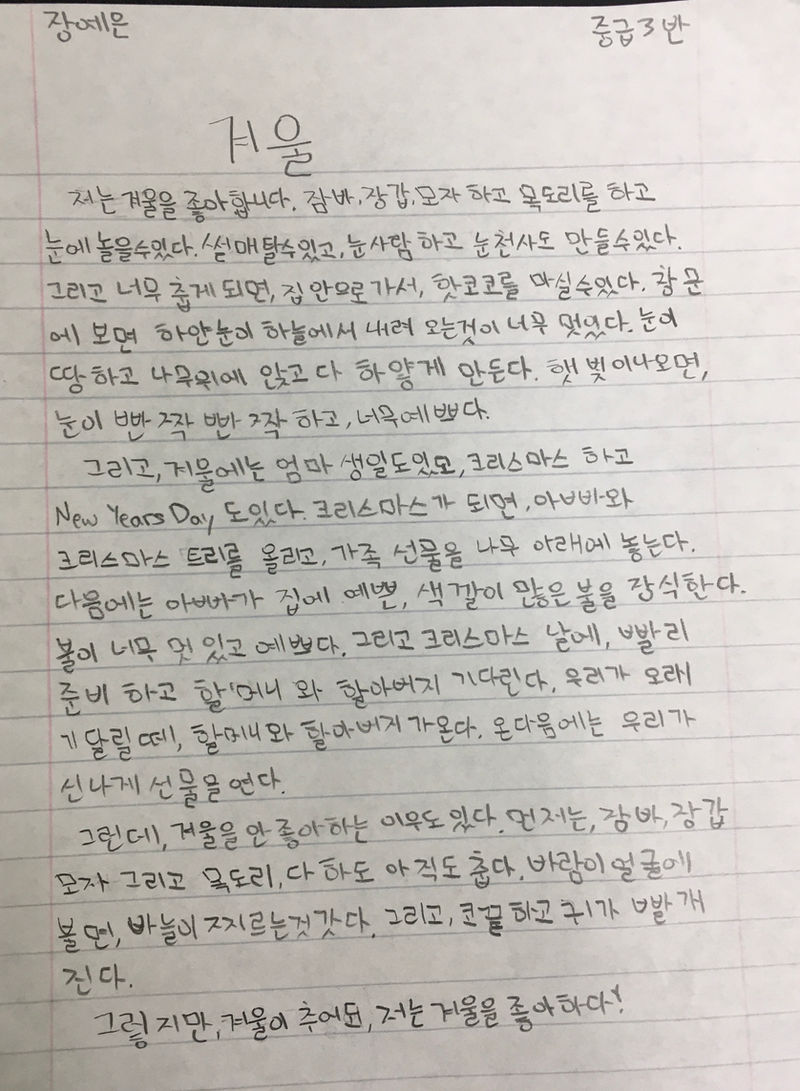 장예은
중급 3 반
겨울
저는 겨울을 좋아합니다. 잠바, 장갑, 모자 하고 목도리를 하고
눈에 놀을수있다. 썰매 탈수있고, 눈사람 하고 눈천사도 만들수있다.
그리고 너무 춥게 되면, 집 안으로 가서, 핫코코를 마실수있다. 창문
에 보면 하얀눈이 하늘에서 내려 오는것이 너무 멋있다. 눈이
땅 하고 나무위에 앉고 다 하얗게 만든다. 햇 빛이나오면,
눈이 빤짝 빤짝 하고, 너무예쁘다.
그리고, 겨울에는 엄마 생일도있고, 크리스마스 하고
New Years Day 도있다. 크리스마스가 되면, 아빠와
크리스마스 트리를 올리고, 가족 선물을 나무 아래에 놓는다.
다음에는 아빠가 집에 예쁜, 색깔이 많은 불을 장식한다.
불이 너무 멋 있고 예쁘다. 그리고 크리스마스 날에, 빨리
준비 하고 할머니 와 할아버지 기다린다. 우리가 오래
기달릴 떼, 할머니와 할아버지가온다. 온다음에는 우리가
신나게 선물을 연다.
그런데, 겨울을 안 좋아하는 이유도있다. 먼저는, 잠바, 장갑
모자 그리고 목도리, 다 하도 아직도 춥다. 바람이 얼굴에
불면, 바늘이 찌르는것 갓다. 그리고, 코끝하고 귀가 빨개
진다.
그렇지만, 겨울이 추어도, 저는 겨울을 좋아하다!